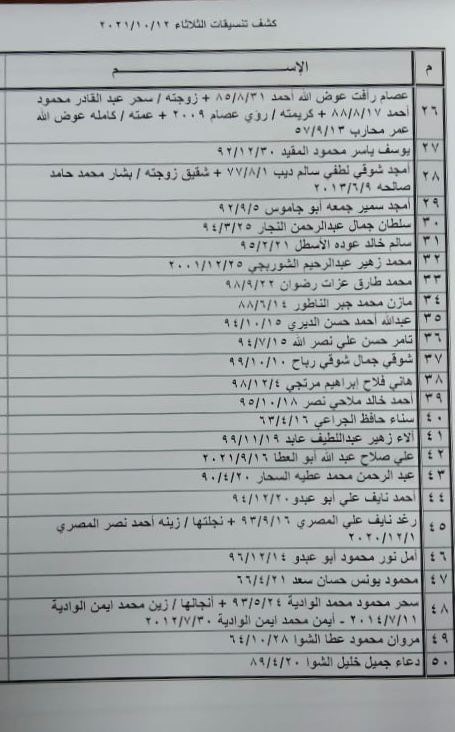 كشف تنسيقات الثلاثاء ٢٠٢١/١٠/١٢
م الإســـــــم
٢٦ عصام رأفت عوض الله أحمد ٨٥/٨/٣١ + زوجته / سحر عبد القادر محمود
أحمد ٨٨/٨/١٧ + كريمته / رؤي عصام ٢٠٠٩ + عمته / كامله عوض الله
عمر محارب ٥٧/٩/١٣
٢٧ يوسف ياسر محمود المقيد ٩٢/١٢/٣٠
٢٨ أمجد شوقي لطفي سالم ديب ٧٧/٨/١ + شقيق زوجته / بشار محمد حامد
صالحه ٢٠١٣/٦/٩
٢٩ أمجد سمير جمعه أبو جاموس ٩٢/٩/٥
٣٠ سلطان جمال عبدالرحمن النجار ٩٤/٣/٢٥
٣١ سالم خالد عوده الأسطل ٩٥/٢/٢١
٣٢ محمد زهير عبدالرحيم الشوربجي ٢٠٠١/١٢/٢٥
٣٣ محمد طارق عزات رضوان ٩٨/٩/٢٢
٣٤ مازن محمد جبر الناطور ٨٨/٦/١٤
٣٥ عبدالله أحمد حسن الديري ٩٤/١٠/١٥
٣٦ تامر حسن علي نصر الله ٩٤/٧/١٥
٣٧ شوقي جمال شوقي رباح ٩٩/١٠/١٠
٣٨ هاني فلاح إبراهيم مرتجي ٩٨/١٢/٤
٣٩ أحمد خالد ملاحي نصر ٩٥/١٠/١٨
٤٠ سناء حافظ الجراعي ٦٣/٤/١٦
٤١ آلاء زهير عبداللطيف عابد ٩٩/١١/١٩
٤٢ علي صلاح عبد الله أبو العطا ٢٠٢١/٩/١٦
٤٣ عبد الرحمن محمد عطيه السحار ٩٠/٤/٢٠
٤٤ أحمد نايف علي أبو عبدو ٩٤/١٢/٢٠
٤٥ رغد نايف علي المصري ٩٣/٩/١٦ + نجلتها / زينه أحمد نصر المصري
٢٠٢٠/١٢/١
٤٦ أمل نور محمود أبو عبدو ٩٦/١٢/١٤
٤٧ محمود يونس حسان سعد ٦٦/٤/٢١
٤٨ سحر محمود محمد الوادية ٩٣/٥/٢٤ + أنجالها / زين محمد ايمن الوادية
٢٠١٤/٧/١١ - أيمن محمد ايمن الوادية ٢٠١٢/٧/٣٠
٤٩ مروان محمود عطا الشوا ٦٤/١٠/٢٨
٥٠ دعاء جميل خليل الشوا ٨٩/٤/٢٠